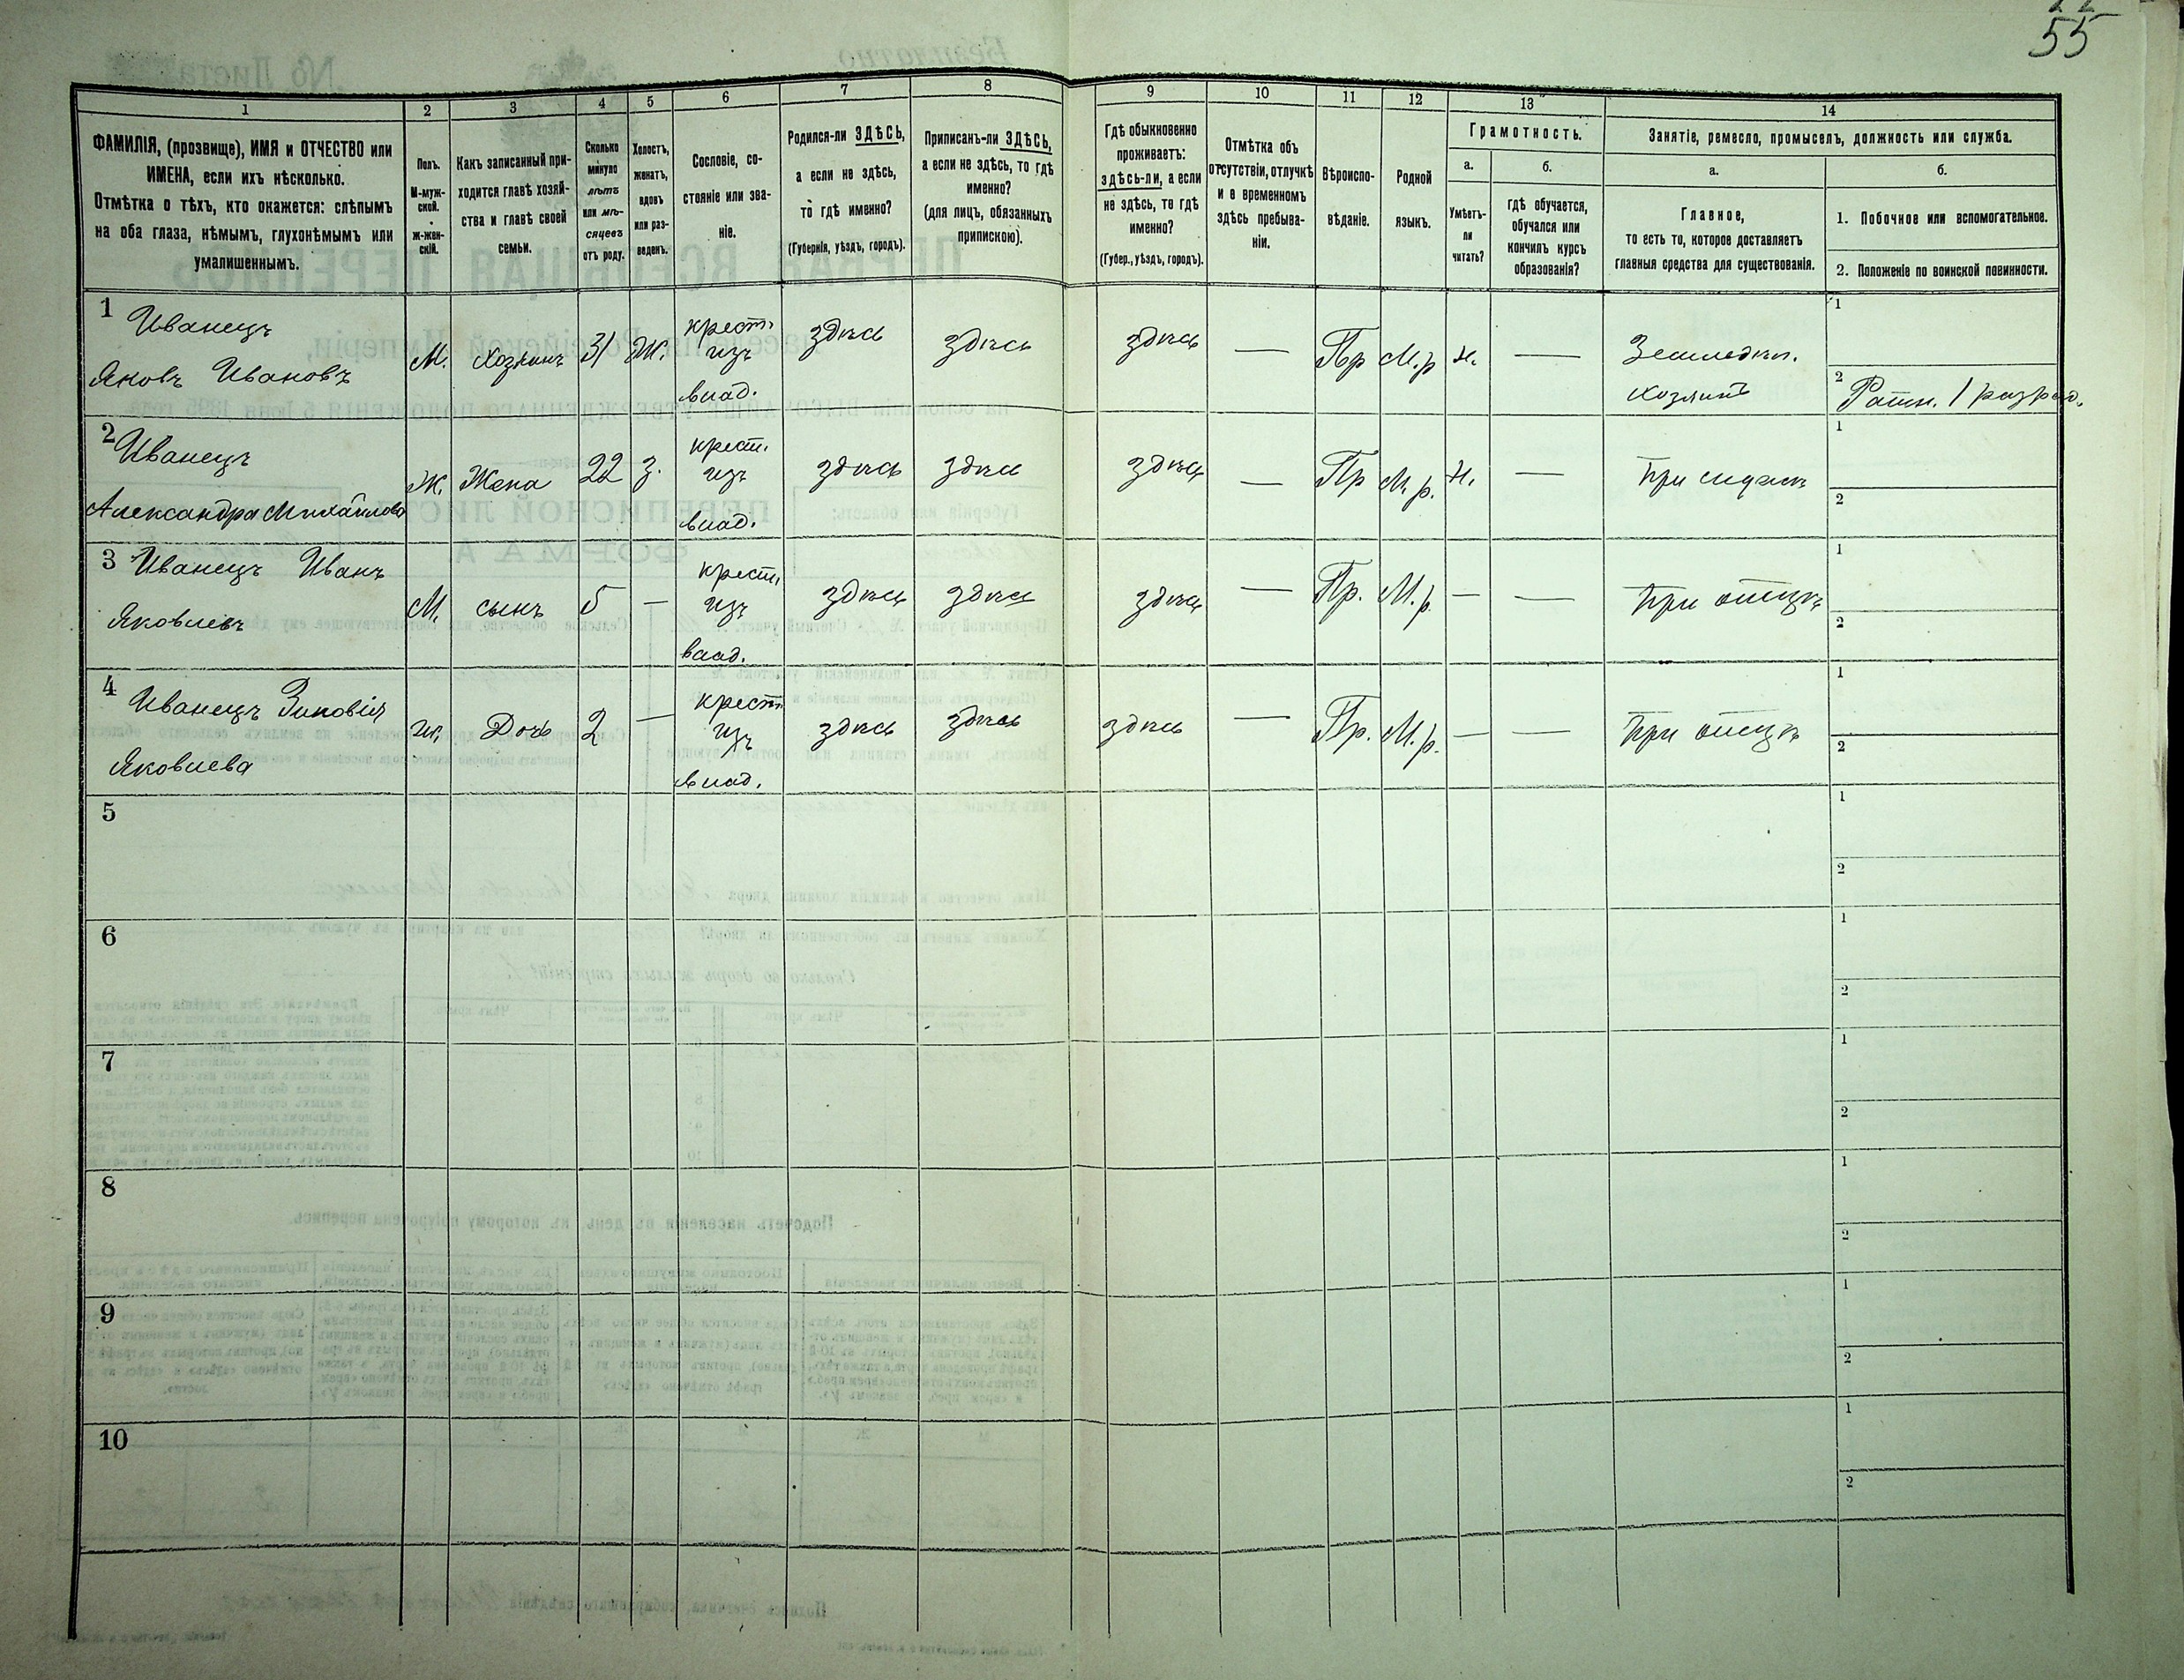 55
1 2 3 4 5 6 7 8 9 10 11 12 13 14
ФАМИЛІЯ, (прозвище), ИМЯ и ОТЧЕСТВО или
ИМЕНА, если ихъ нѣсколько.
Отмѣтка о тѣхъ, кто окажется: слѣпымъ
на оба глаза, нѣмымъ, глухонѣмымъ или
умалишеннымъ.
Полъ.
М-муж-
ской.
ж-жен-
скій.
Какъ записанный при-
ходится главѣ хозяй-
ства и главѣ своей
семьи.
Сколько
минуло
лѣтъ
или мѣ-
сяцевъ
отъ роду.
Холостъ,
женатъ,
вдовъ
или раз-
веденъ.
Сословіе, со-
стояніе или зва-
ніе.
Родился-ли ЗДѢСЬ,
а если не здѣсь,
то гдѣ именно?
(Губернія, уѣздъ, городъ).
Приписанъ-ли ЗДѢСЬ,
а если не здѣсь, то гдѣ
именно?
(для лицъ, обязанныхъ
припискою).
Гдѣ обыкновенно
проживаетъ:
здѣсь-ли, а если
не здѣсь, то гдѣ
именно?
(Губер., уѣздъ, городъ).
Отмѣтка объ
отсутствіи, отлучкѣ
и о временномъ
здѣсь пребыва-
ніи.
Вѣроиспо-
вѣданіе.
Родной
языкъ.
Грамотность.
а.
Умѣетъ-
ли
читать?
б.
гдѣ обучается,
обучался или
кончилъ курсъ
образованія?
Занятіе, ремесло, промыселъ, должность или служба.
а.
Главное,
то есть то, которое доставляетъ
главныя средства для существованія.
б.
1. Побочное или вспомогательное.
2. Положеніе по воинской повинности.
1 Иванецъ
Яковъ Ивановъ
М. Хозяинъ 31 Ж.
крест.
изъ
влад.
здѣсь здѣсь здѣсь — Пр М.р н. —
Земледѣл.
хозяинъ
1
2 Ратн. 1 разряд.
2 Иванецъ
Александра Михайлова
Ж. Жена 22 з.
крест.
изъ
влад.
здѣсь здѣсь здѣсь — Пр М.р. н. — При мужѣ
1
2
3 Иванецъ Иванъ
Яковлевъ
М. сынъ 5 —
крест.
изъ
влад.
здѣсь здѣсь здѣсь — Пр. М.р. — — При отцѣ
1
2
4 Иванецъ Зиновія
Яковлева
ж. Дочь 2 —
крест.
изъ
влад.
здѣсь здѣсь здѣсь — Пр. М.р. — — При отцѣ
1
2
5
1
2
6
1
2
7
1
2
8
1
2
9
1
2
10
1
2